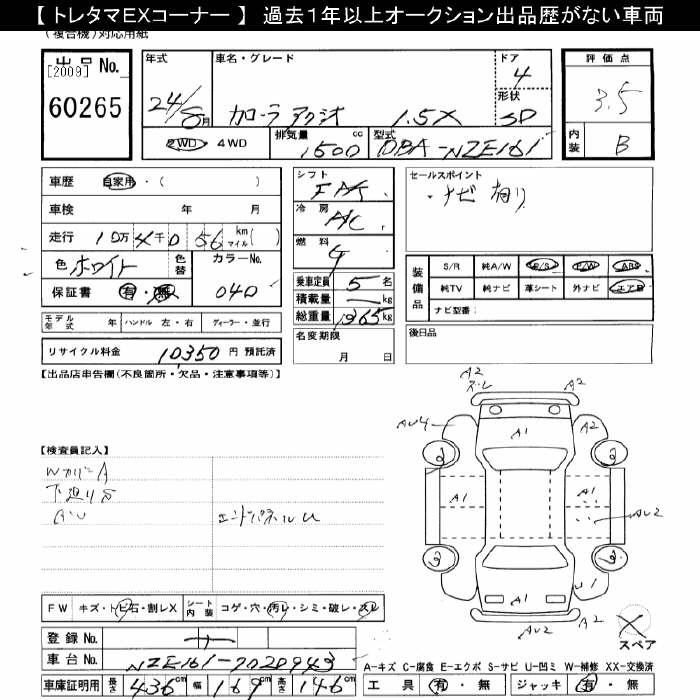 【 トレタマEXコーナー 】 過去1年以上オークション出品歴がない車両
(複合機)対応用紙
出品No. [2009]
60265
年式 24/8月
車名・グレード カローラ アクシオ 1.5X
ドア 4
形状 SD
評価点 3.5
内装 B
2WD ・ 4WD
排気量 1500 cc
型式 DBA-NZE161
車歴 自家用・( )
車検 年 月
走行 10万 4千 056 km マイル( )
色 ホワイト 色替 カラーNo. 040
保証書 有・無
モデル年式 年 ハンドル 左・右 ディーラー・並行
リサイクル料金 10350 円 預託済
シフト FAT
冷房 A/C
燃料 G
乗車定員 5 名
積載量 kg
総重量 1365 kg
名変期限 月 日
セールスポイント
・ナビ 有り
装備品 S/R 純A/W P/S P/W ABS
純TV 純ナビ 革シート 外ナビ エアB
ナビ型番:
後日品
【出品店申告欄(不良箇所・欠品・注意事項等)】
【検査員記入】
Wカバー A
下廻りサ
AU
エンドパネルU
A2
ズレ
A2
AU4
A1
A2
2
2
A1
A1
AU2
3
3
A1
U1
A2
AU2
スペア
FW キズ・トビ石・割レX シート内装 コゲ・穴・汚レ・シミ・破レ・スレ
登録No.
車台No. NZE161-7020943
車庫証明用 長さ 436 cm 幅 169 cm 高さ 146 cm
A-キズ C-腐食 E-エクボ S-サビ U-凹ミ W-補修 XX-交換済
工具 有・無 ジャッキ 有・無